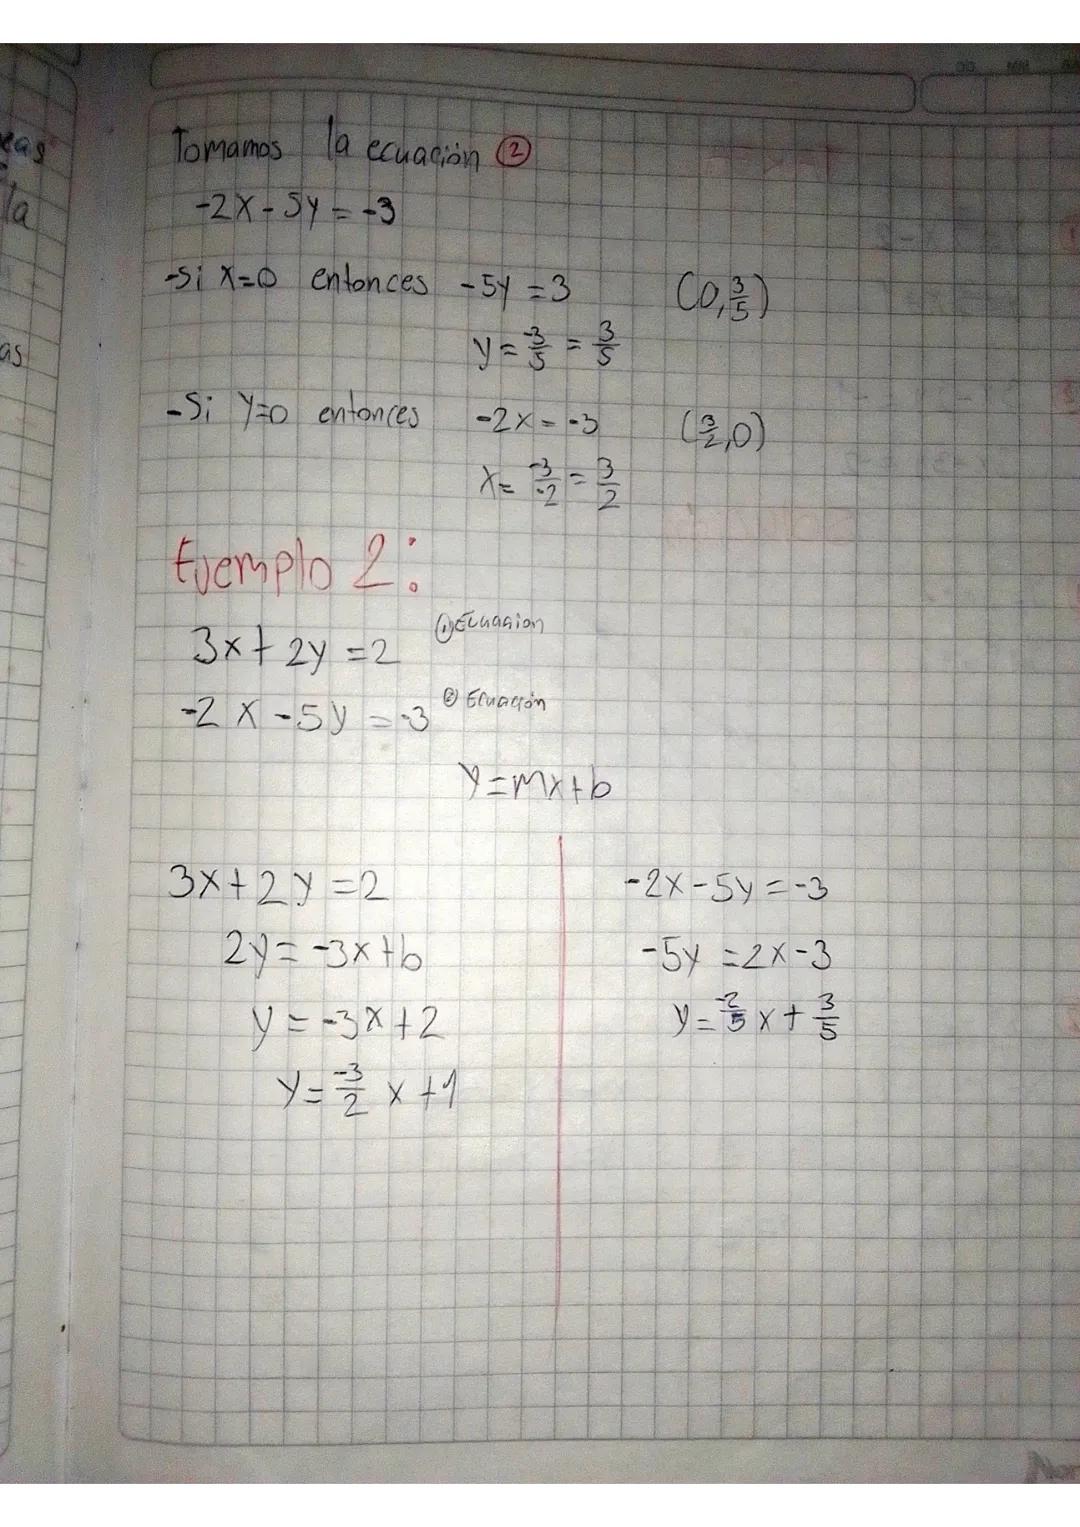 eas
la
as
Tomamos la ecuación ②
-2x-5y=-3
-Si x=0 entonces -5y=3 (0,3/5)
y=-3/5=3/5
-Si y=0 entonces -2x=-3 (3/2,0)
x=-3/-2=3/2
Ejemplo 2:
3x+2y=2 ① Ecuación
-2x-5y=-3 ② Ecuación
y=mx+b
3x+2y=2
2y=-3x+b
y=-3x+2
y=-3/2 x+1
-2x-5y=-3
-5y=2x-3
y=-2/5 x+3/5
Nor